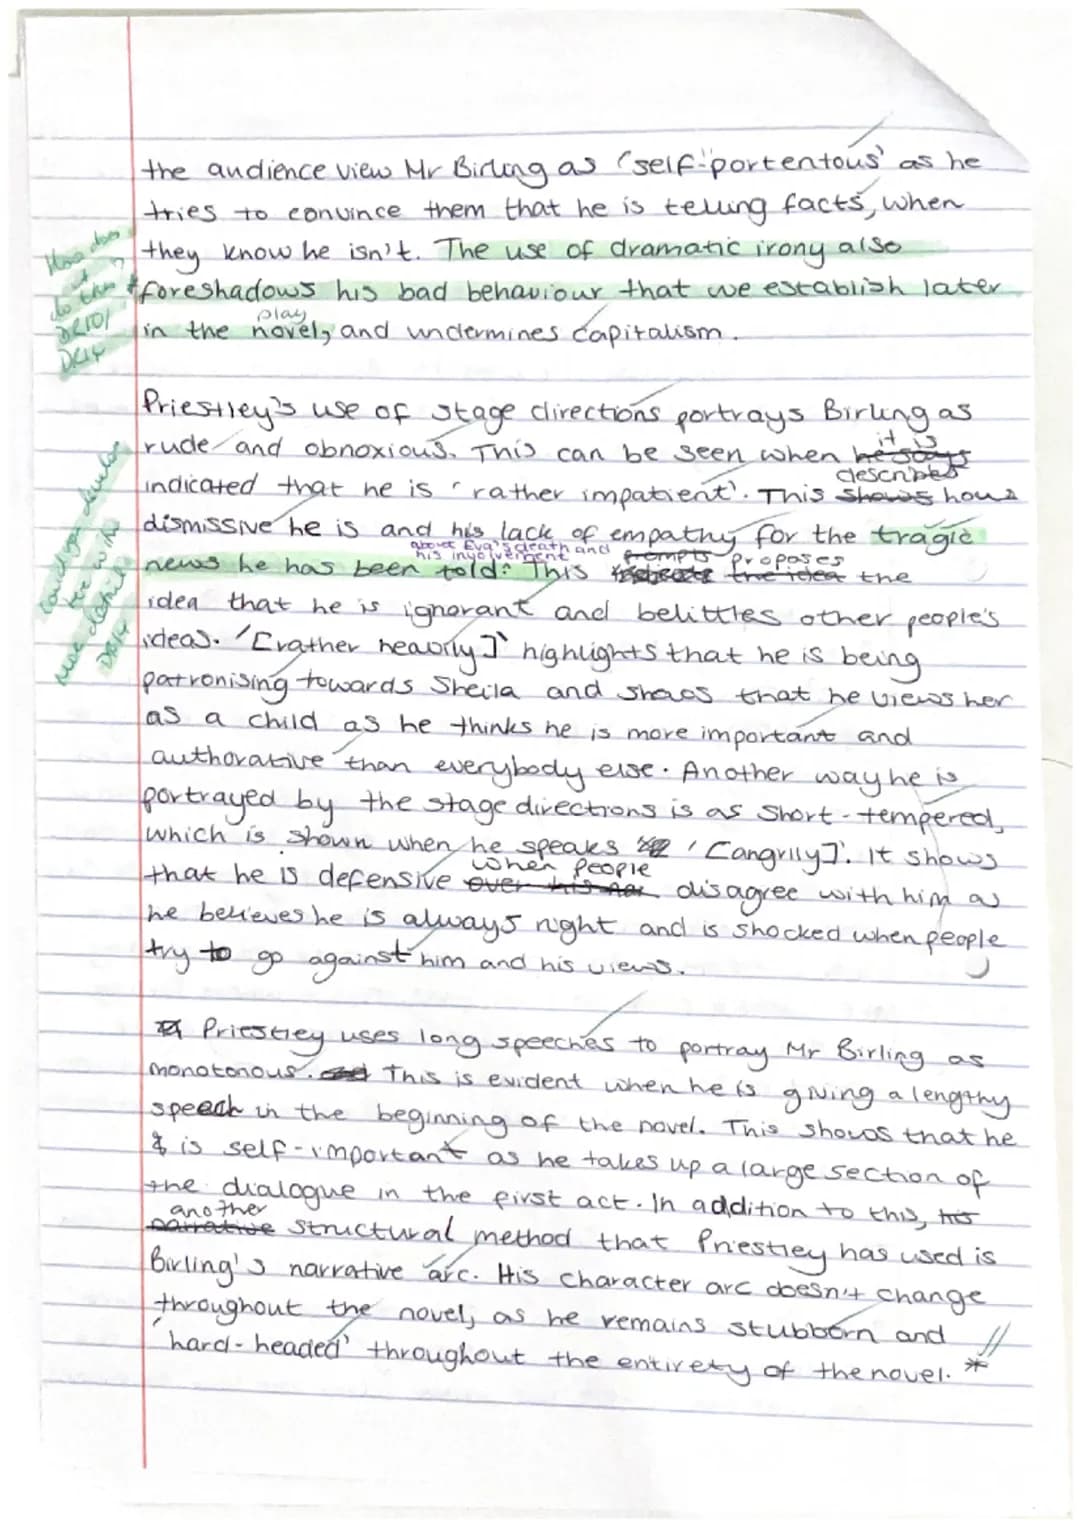 the audience view Mr Birling as 'self-portentous' as he
tries to convince them that he is telling facts, when
they know he isn't. The use of dramatic irony also
How does
it
do this?
DR10/
DR14
* foreshadows his bad behaviour that we establish later
play
in the novel, and undermines capitalism.
Priestley's use of stage directions portrays Birling as
rude and obnoxious. This can be seen when he says
it is
indicated that he is 'rather impatient'. This shows how
describes
dismissive he is and his lack of empathy for the tragic
about Eva's death and
his involvement
news he has been told. This prompts the idea the
Proposes
Could you develop
here with
more detail
DR14
idea that he is ignorant and belittles other people's
ideas. '[rather heavily]' highlights that he is being
patronising towards Sheila and shows that he views her
as a child as he thinks he is more important and
authorative than everybody else. Another way he is
portrayed by the stage directions is as short-tempered,
which is shown when he speaks '[angrily]'. It shows
when people
that he is defensive over his disagree with him as
he believes he is always right and is shocked when people
try to go against him and his views.
Priestley uses long speeches to portray Mr Birling as
monotonous. and This is evident when he is giving a lengthy
speech in the beginning of the novel. This shows that he
is self-important as he takes up a large section of
the dialogue in the first act. In addition to this, his
another
narrative structural method that Priestley has used is
Birling's narrative arc. His character arc doesn't change
throughout the novel, as he remains stubborn and
'hard-headed' throughout the entirety of the novel. *